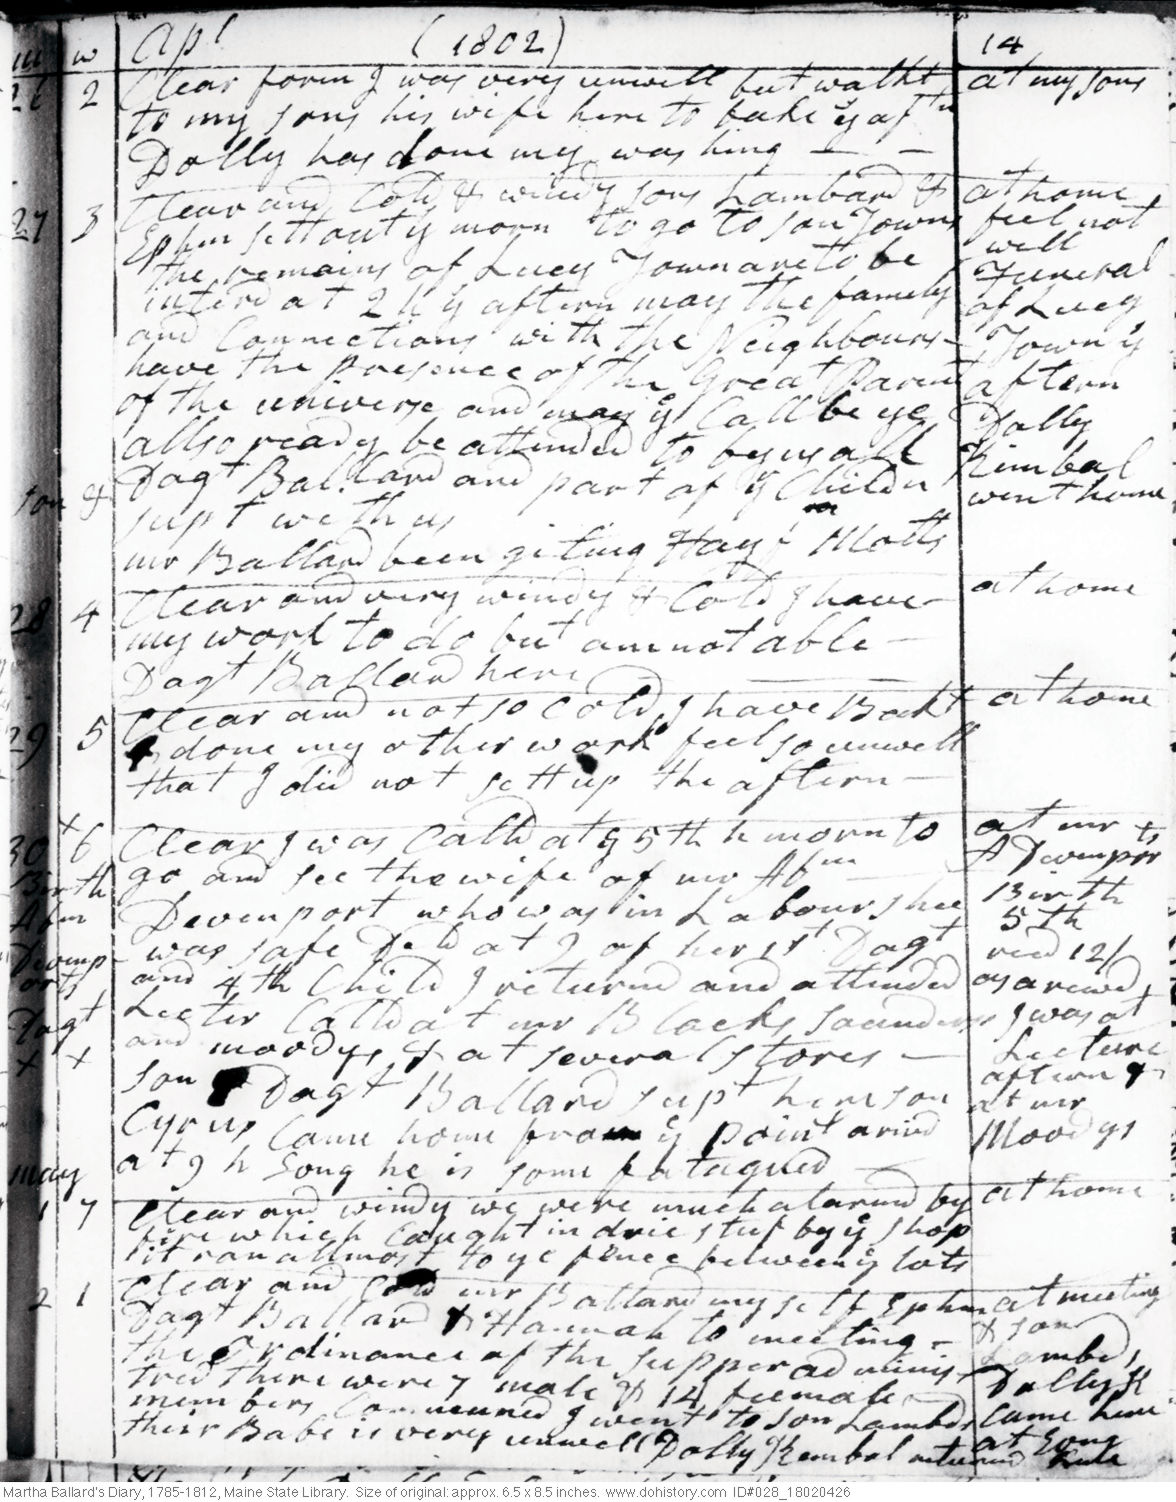 m w Apl (1802) 14
26 2 Clear foren I was very unwell but walkt at my sons
to my sons his wife here to bake ye aftn
Dolly has done my washing
27 3 Clear and Cold & windy sons Lambard & at home
Ephm sett out ye morn to go to son Towns feel not
the remains of Lucy Town are to be well
interd at 2 h ye aftern may the famely Funeral
and Connections with the Neighbours of Lucy
have the Presence of the Great Parent Town ye
of the univers and may ys Call be ye aftern
allso ready be attended to by us all Dolly
Dagt Ballard and part of ye Childn Kimbal
son & supt with us went home
mr Ballard been giting Hay f Molts
28 4 Clear and very windy & Cold I have at home
my work to do but am not able
Dagt Ballard here
29 5 Clear and not so Cold I have Bakt at home
& done my other work feel so unwell
that I did not sett up the aftern
x
30 6 Clear I was Calld at ys 5th h morn to at mr
Birth go and see the wife of mr Abm A Devenports
Abm Devenport who was in Labour shee Birth
Devenp was safe Deld at 9 of her 1st Dagt 5th
orts and 4th Child I returnd and attended recd 12/
Dagt Lecter Calld at mr Blacks Saunders as a rewd
x x and moodys & at severa stores I was at
son & Dagt Ballard supt here son Lecture
Cyrus Came home from ye point arivd aftern &
may at 9 h Eong he is some fatagued at mr
Moodys
1 7 Clear and windy we were much alarmd by at home
fire which Caught in drie stuf by ye shop
it ran allmost to ye fence between ye lots
2 1 Clear and Cold mr Ballard my self Ephm at meeting
Dagt Ballard & Hannah to meeting & son
the Ordinance of the supper adminis Lambds
tred there were 7 male & 14 feemale Dolly K
members Communed I went to son Lambds Came here
their Babe is very unwell Dolly Kembal returnd at Eong